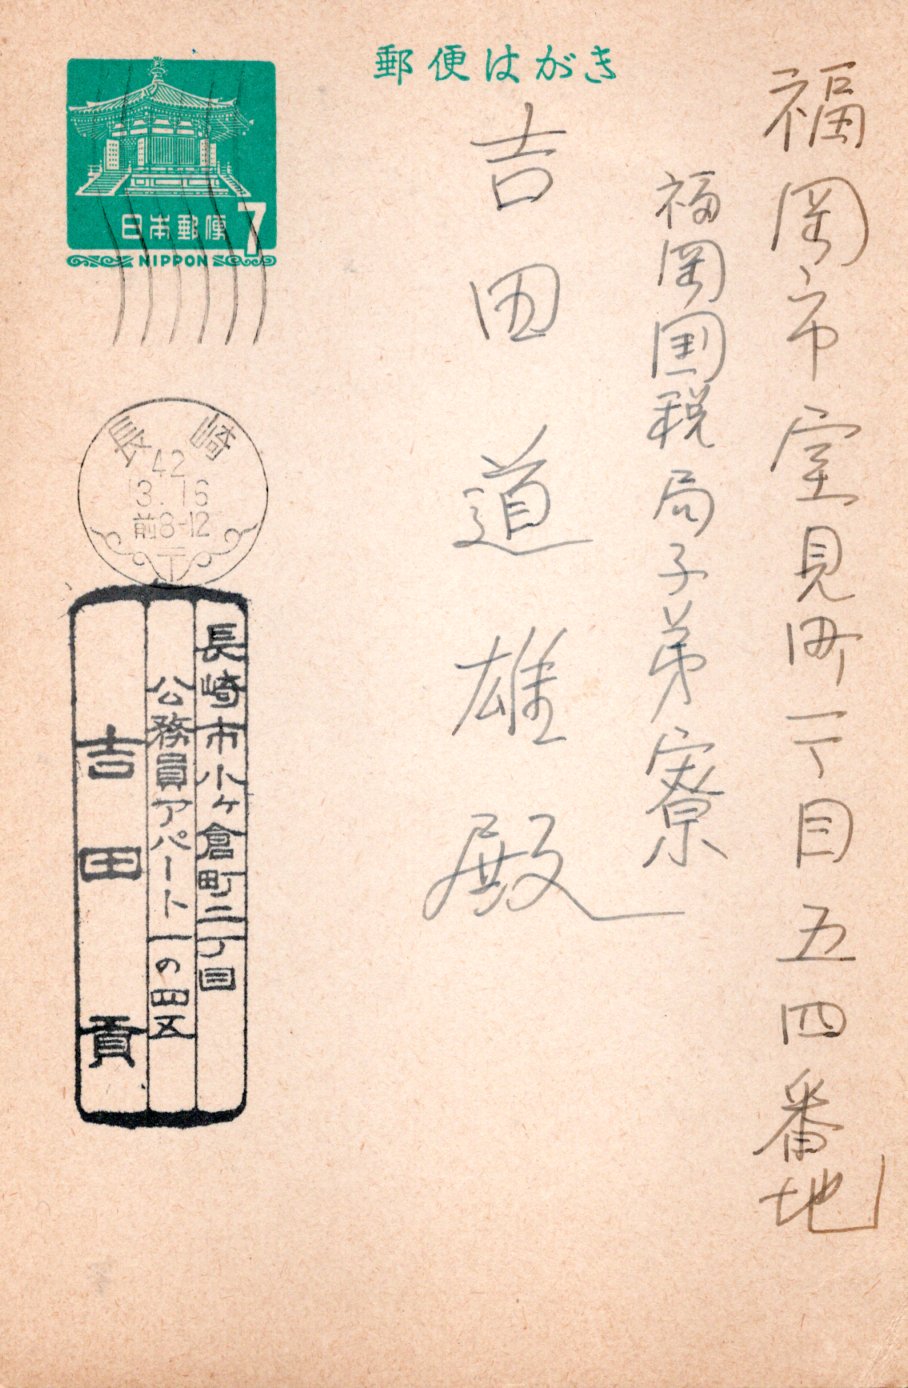 郵便はがき
福岡市室見町一丁目五四番地
福岡国税局子弟寮
吉田道雄殿
日本郵便
7
NIPPON
長崎
42
3.16
前8-12
長崎市小ヶ倉町二丁目
公務員アパート一の四五
吉田貢